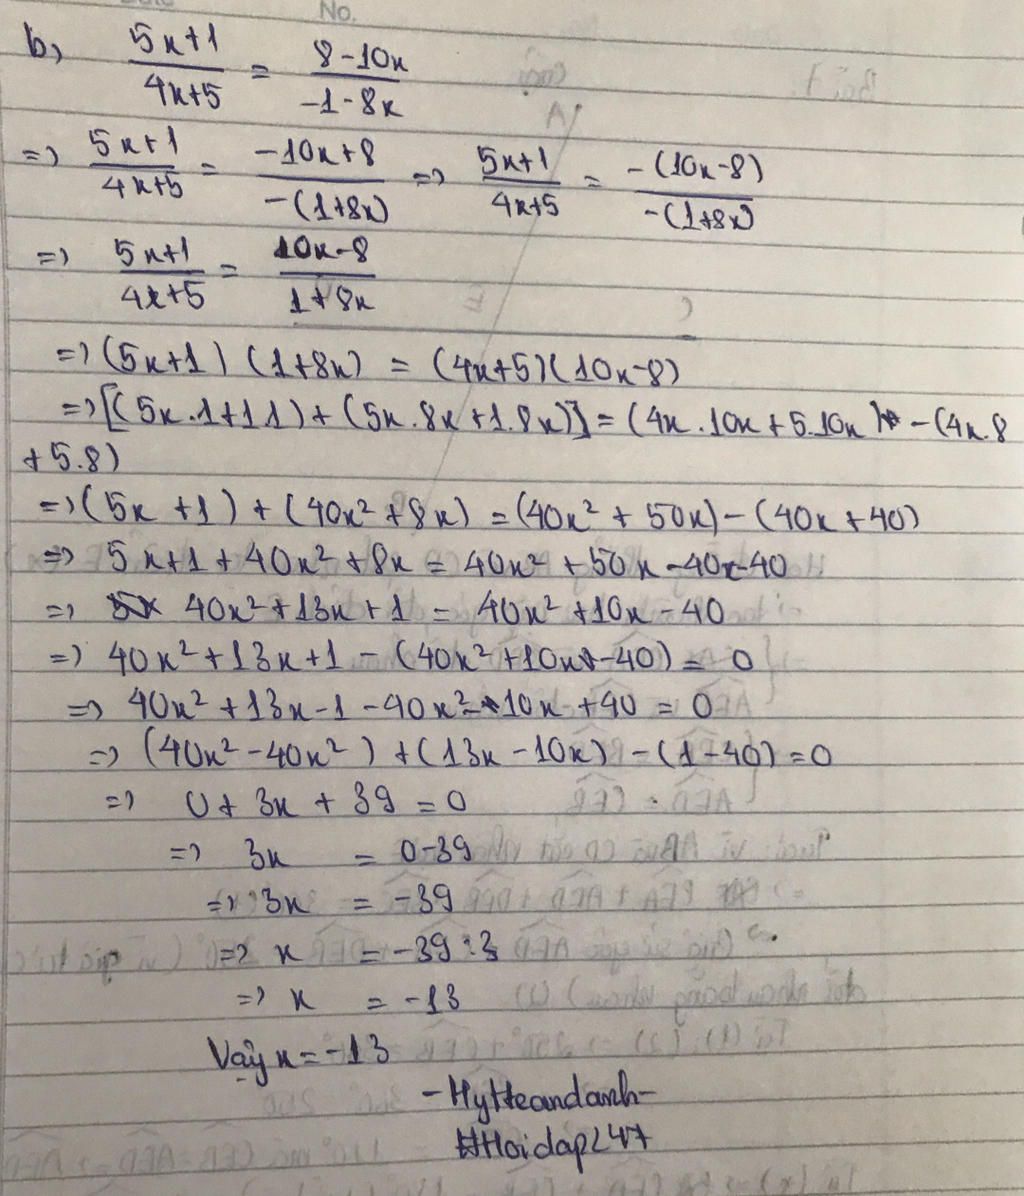 No.
b, (5x+1)/(4x+5) = (8-10x)/(-1-8x)
=> (5x+1)/(4x+5) = (-10x+8)/(-(1+8x)) => (5x+1)/(4x+5) = (-(10x-8))/(-(1+8x))
=> (5x+1)/(4x+5) = (10x-8)/(1+8x)
=> (5x+1) (1+8x) = (4x+5)(10x-8)
=> [(5x.1+1.1)+(5x.8x+1.8x)] = (4x.10x+5.10x) - (4x.8
+5.8)
=> (5x+1)+(40x²+8x) = (40x²+50x)-(40x+40)
=> 5x+1+40x²+8x = 40x²+50x-40x-40
=> 40x²+13x+1 = 40x²+10x-40
=> 40x²+13x+1-(40x²+10x-40) = 0
=> 40x²+13x-1-40x²-10x+40 = 0
=> (40x²-40x²)+(13x-10x)-(1-40)=0
=> 0+3x+39=0
=> 3x = 0-39
=> 3x = -39
=> x = -39:3
=> x = -13
Vậy x=-13
-HyHeandanh-
#Hoidap247